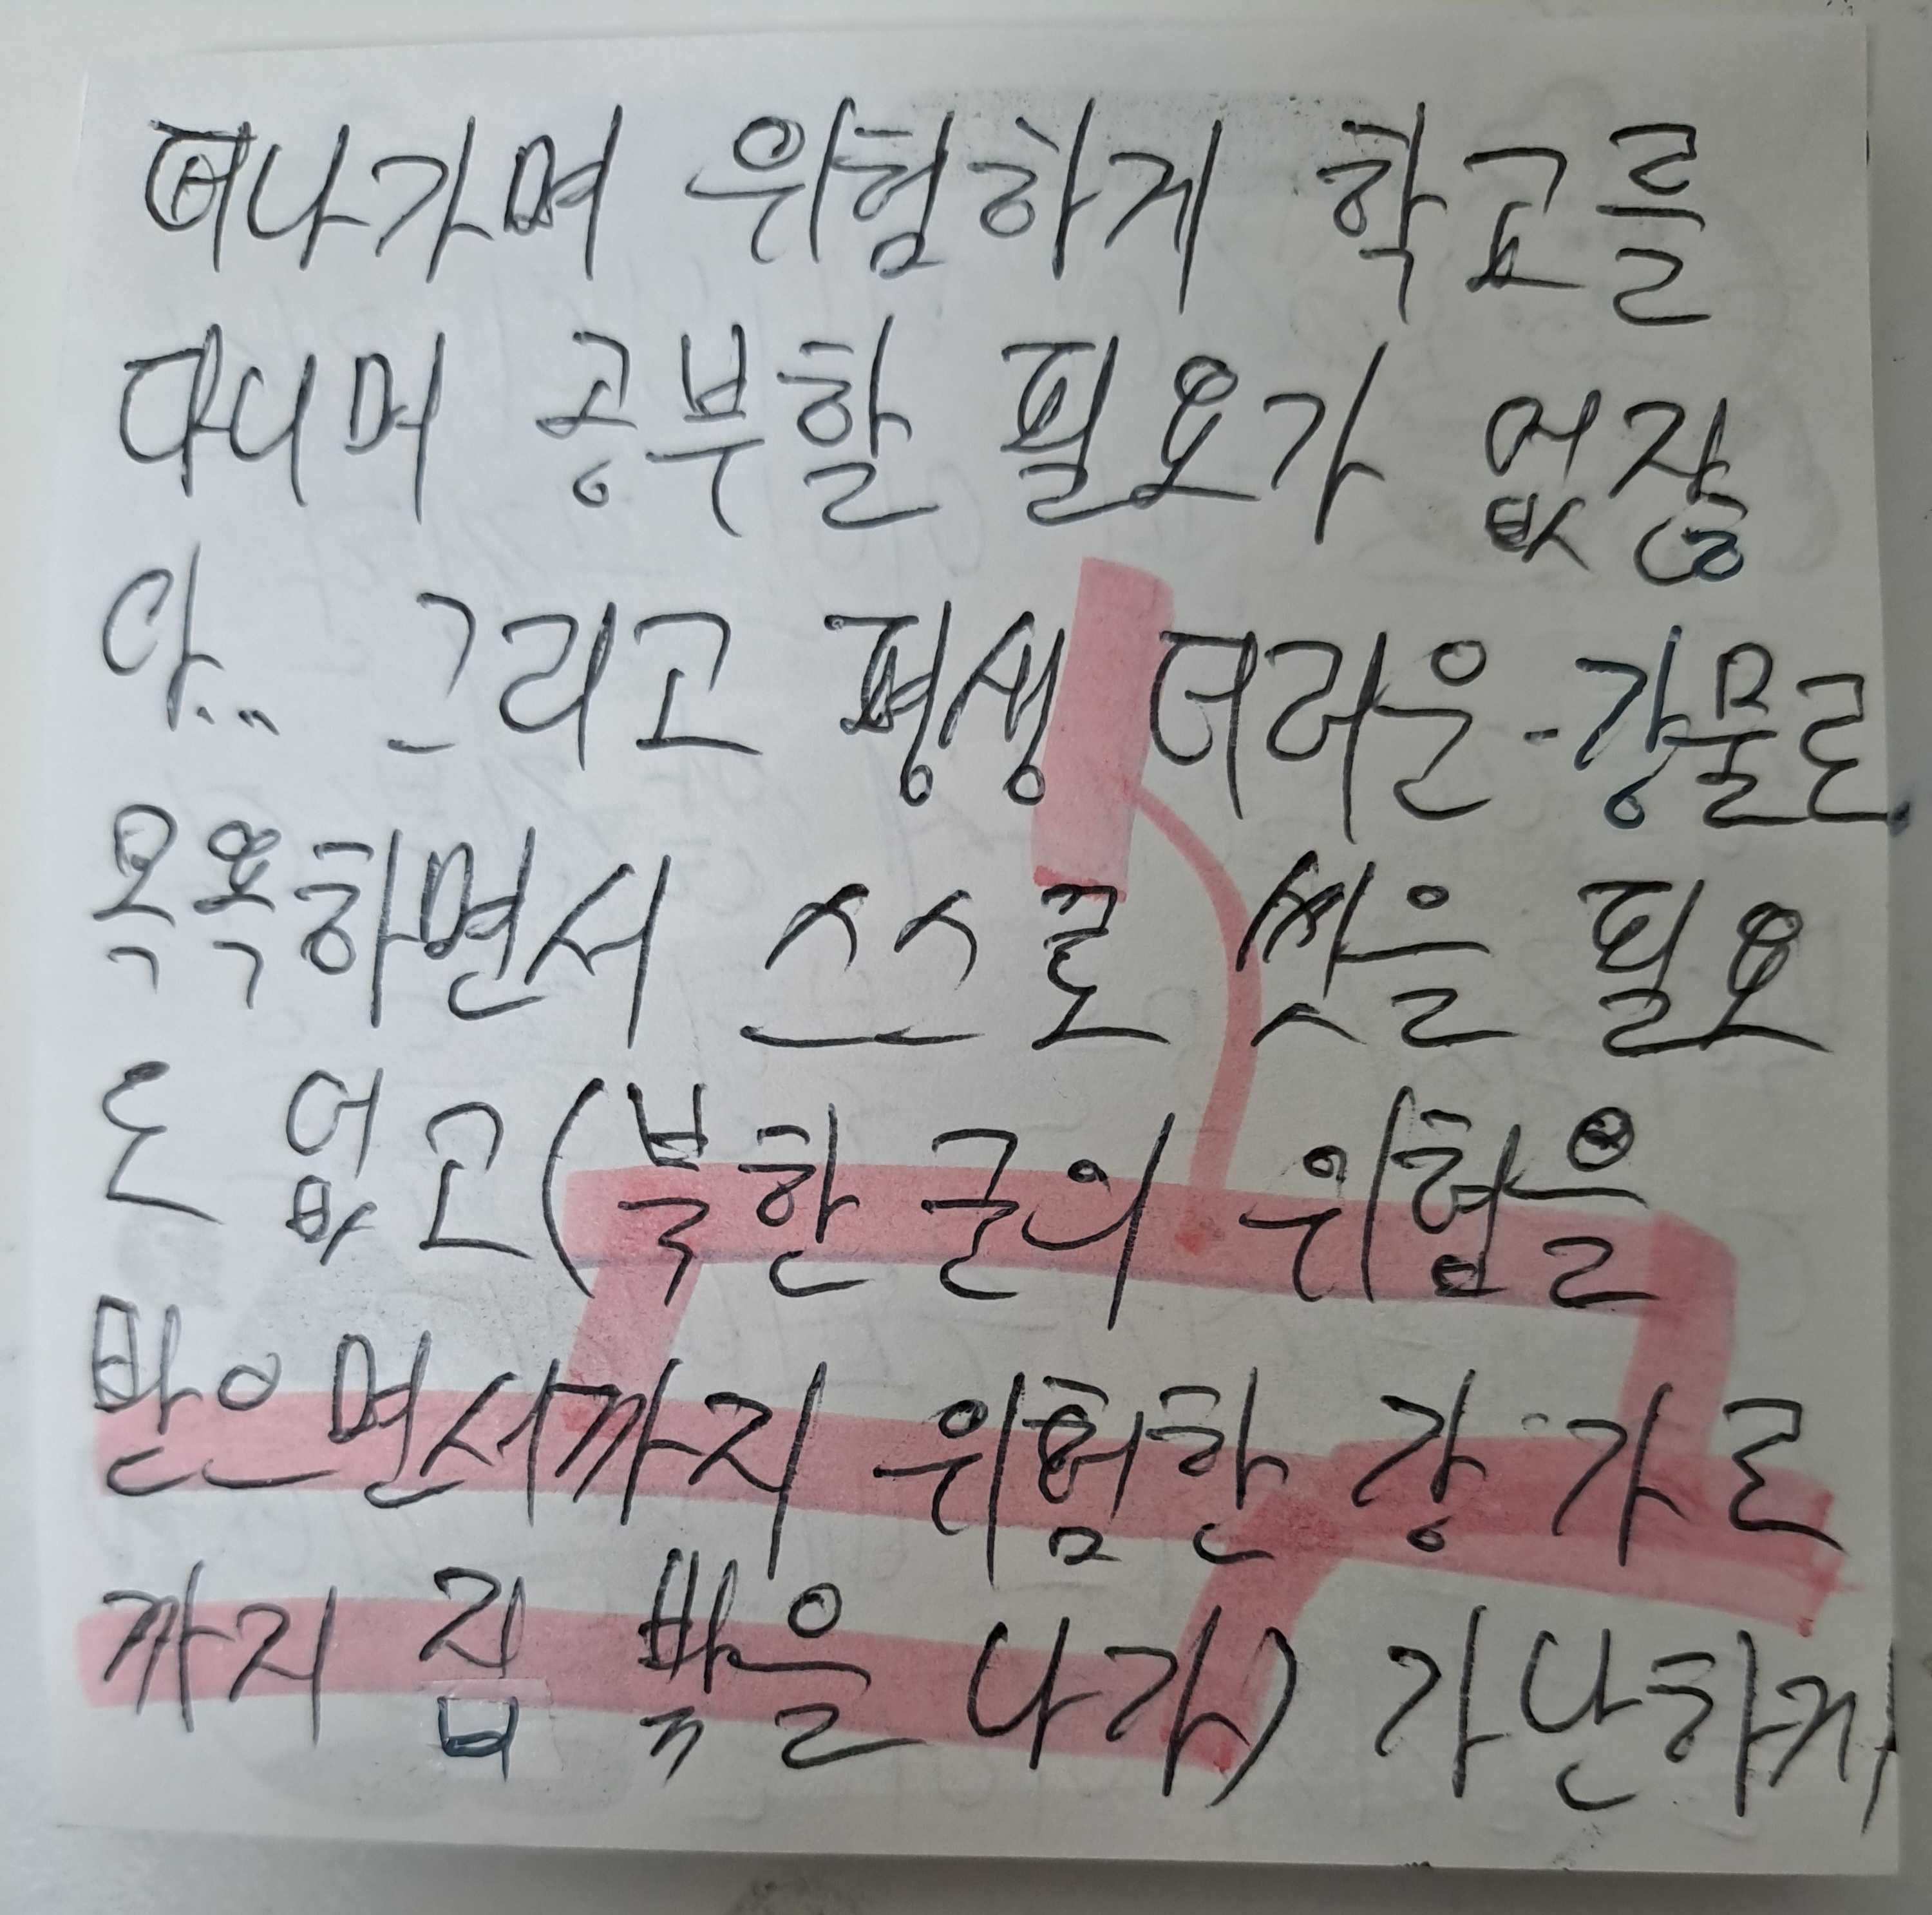 떠나가며 위험하게 학교를
다니며 공부할 필요가 없잖
아... 그리고 평생 더러운 강물로
목욕하면서 스스로 씻을 필요
도 없고(북한군의 위협을
받으면서까지 위험한 강가로
까지 집 밖을 나가) 가난하게